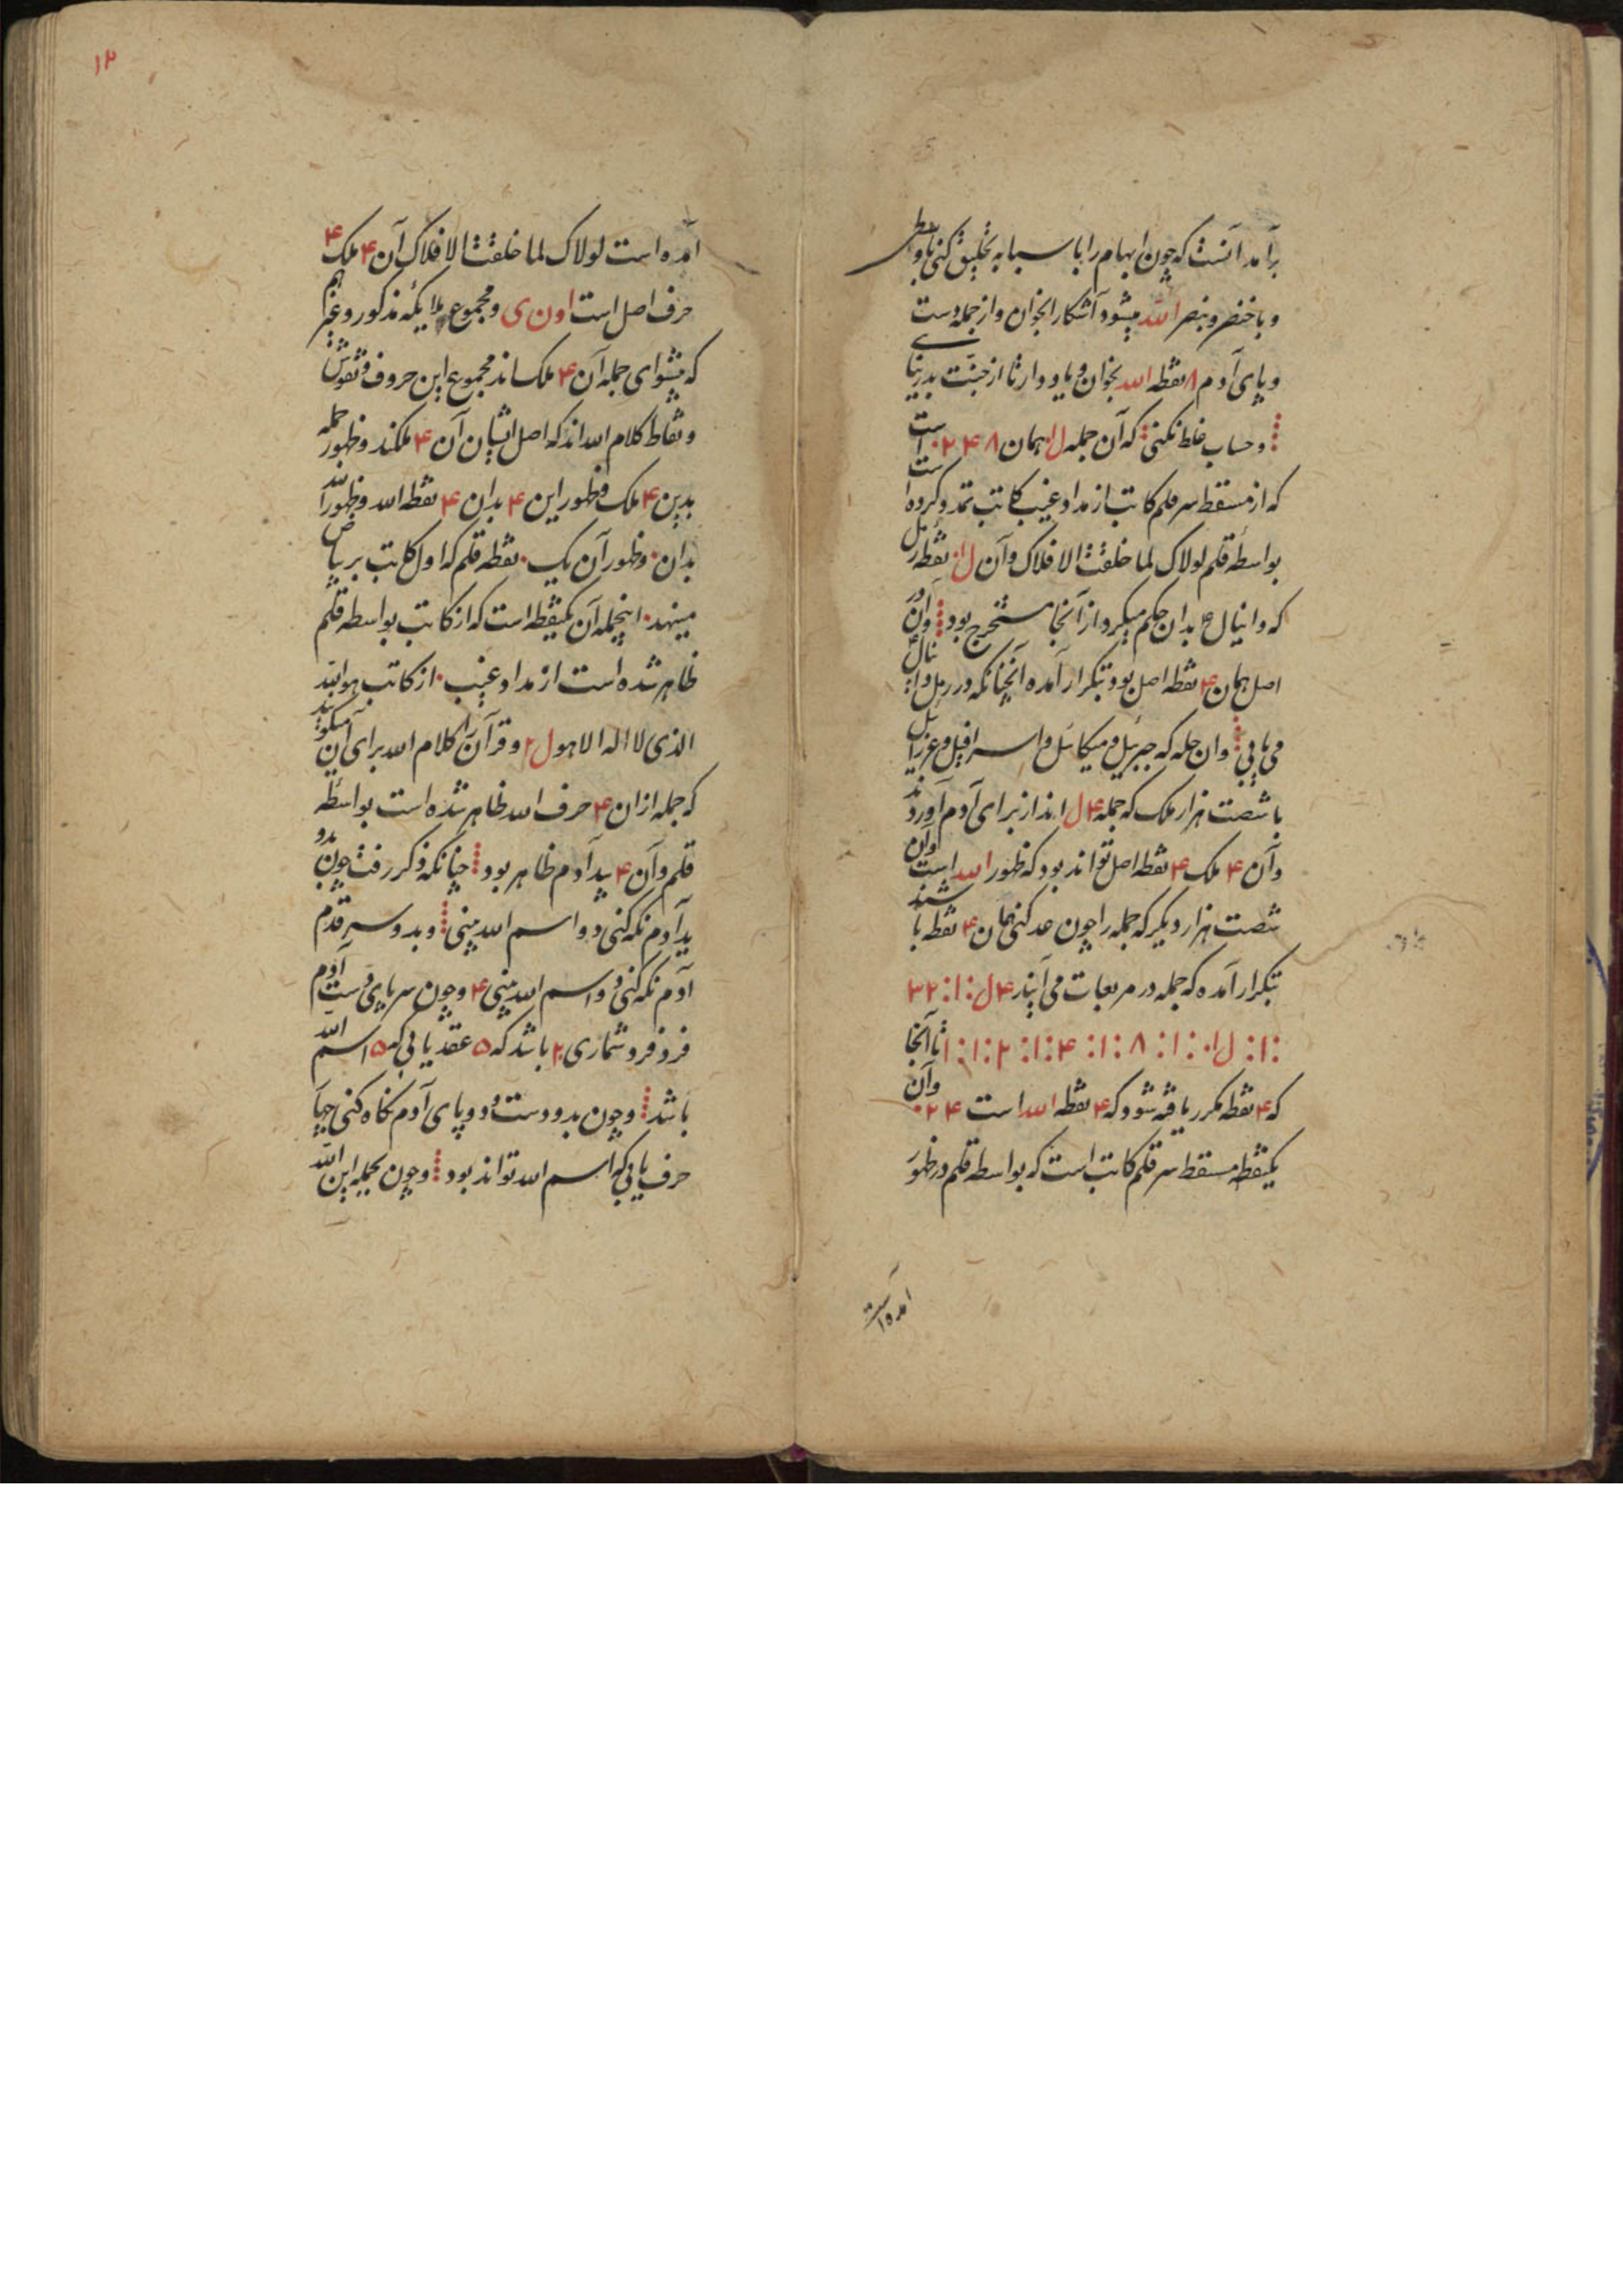 برآمد آنست که چون ابهام را با سبابه تحلیق کنی با وسطی
و با خنصر و بنصر الله میشود آشکارا بخوان و از جمله دست
و پای آدم ۸ نقطه الله بخوان و یاد دار تا از جنت بدر نیایی
و حساب غلط نکنی که آن جمله ل۱۰ همان ۸ ۴ ۲ ۰ است
که از مسقط سر قلم کاتب از مداد غیب کاتب تمد و کرده است
بواسطه قلم لولاک لما خلقت الافلاک و آن ل۱۰ نقطه رمل
که دانیال ع بدان حکم میکرد از آنجا مستخرج بود و آن در
اصل همان ۴ نقطه اصل بود بتکرار آمده آنچنانکه در رمل دانیال
می یابی و ان جمله که جبرئیل و میکائل و اسرافیل و عزرائیل
با شصت هزار ملک که جمله ۴ ل اند از برای آدم آوردند
و آن ۴ ملک ۴ نقطه اصل تواند بود که ظهور الله است و آن
شصت هزار دیگر که جمله را چون عد کنی همان ۴ نقطه باشند
بتکرار آمده که جمله در مربعات می آیند ۴ ل :۱: ۳۲
:۱: ل۱۰ :۱: ۸ :۱: ۴ :۱: ۲ :۱: ۱ تا آنجا
که ۴ نقطه مکرر یافته شود که ۴ نقطه الله است ۴ ۲ ۰ و آن
یکنقطه مسقط سر قلم کاتب است که بواسطه قلم در ظهور
آمده است
۱۲
آمده است لولاک لما خلقت الافلاک آن ۴ ملک ۴
حرف اصل است اون ی و مجموع ملایکه مذکور و غیرهم
که پیشوای جمله آن ۴ ملک اند مجموع این حروف و نقوش
و نقاط کلام الله اند که اصل ایشان آن ۴ ملکند و ظهور جمله
بدین ۴ ملک و ظهور این ۴ بدان ۴ نقطه الله و ظهور الله
بدان ۰ و ظهور آن یک ۰ نقطه قلم که اول کاتب بر بیاض
مینهد ۰ اینجمله آن یکنقطه است که از کاتب بواسطه قلم
ظاهر شده است از مداد غیب ۰ از کاتب هو الله
الذی لا اله الا هو ل۲ و قرآن را کلام الله برای آن میگویند
که جمله ازان ۴ حرف الله ظاهر شده است بواسطه
قلم و آن ۴ بید آدم ظاهر بود چنانکه ذکر رفت چون بدو
ید آدم نگه کنی دو اسم الله بینی و بدو سر قدم
آدم نگه کنی دو اسم الله بینی ۴ و چون سر پای و دست آدم
فرو فرو شماری ۲۰ باشد که ۵ عقد یابی که ۵ اسم الله
باشد و چون بدو دست و دو پای آدم نگاه کنی چهار
حرف یابی که اسم الله تواند بود و چون بجمله این الله